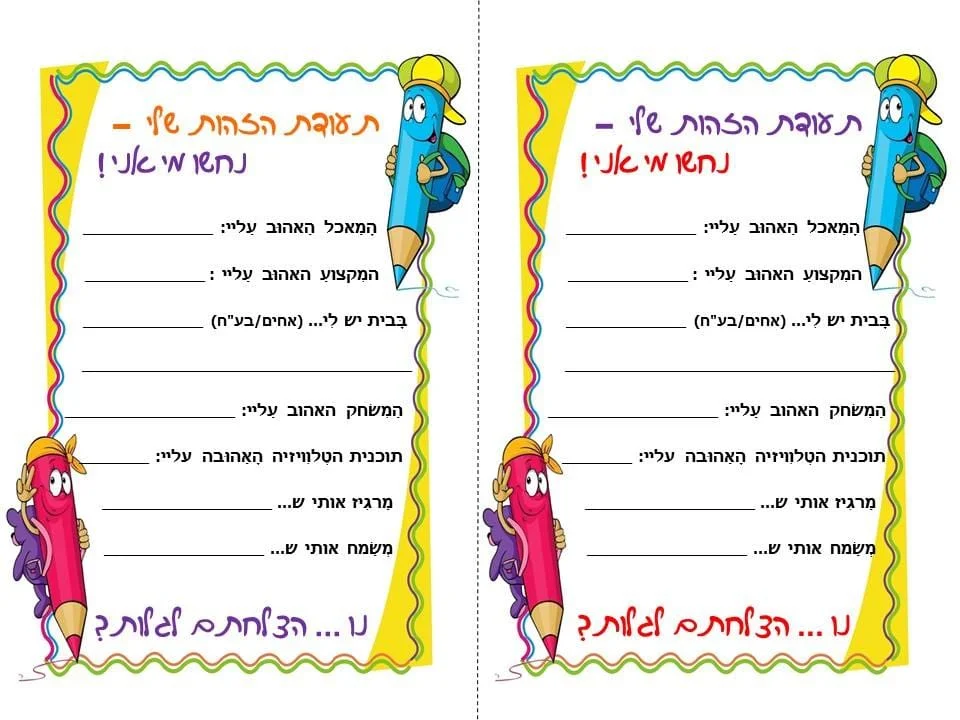 תעודת הזהות שלי –
נחשו מי אני!
הָמַאכל הַאהוּב עַליי: ____________
המִקצועַ האהוּב עַליי : ____________
בָּבית יש לִי... (אחים/בע"ח) ____________
____________________________
הַמִשׂחק האהוב עַליי: ____________
תוכנית הטֶלוִויזיה הָאַהוּבה עליי: ________
מַרגִיז אותי ש... ____________
מְשַׂמח אותי ש... ____________
נו ... הצלחתם לגלות?
תעודת הזהות שלי –
נחשו מי אני!
הָמַאכל הַאהוּב עַליי: ____________
המִקצועַ האהוּב עַליי : ____________
בָּבית יש לִי... (אחים/בע"ח) ____________
____________________________
הַמִשׂחק האהוב עַליי: ____________
תוכנית הטֶלוִויזיה הָאַהוּבה עליי: ________
מַרגִיז אותי ש... ____________
מְשַׂמח אותי ש... ____________
נו ... הצלחתם לגלות?